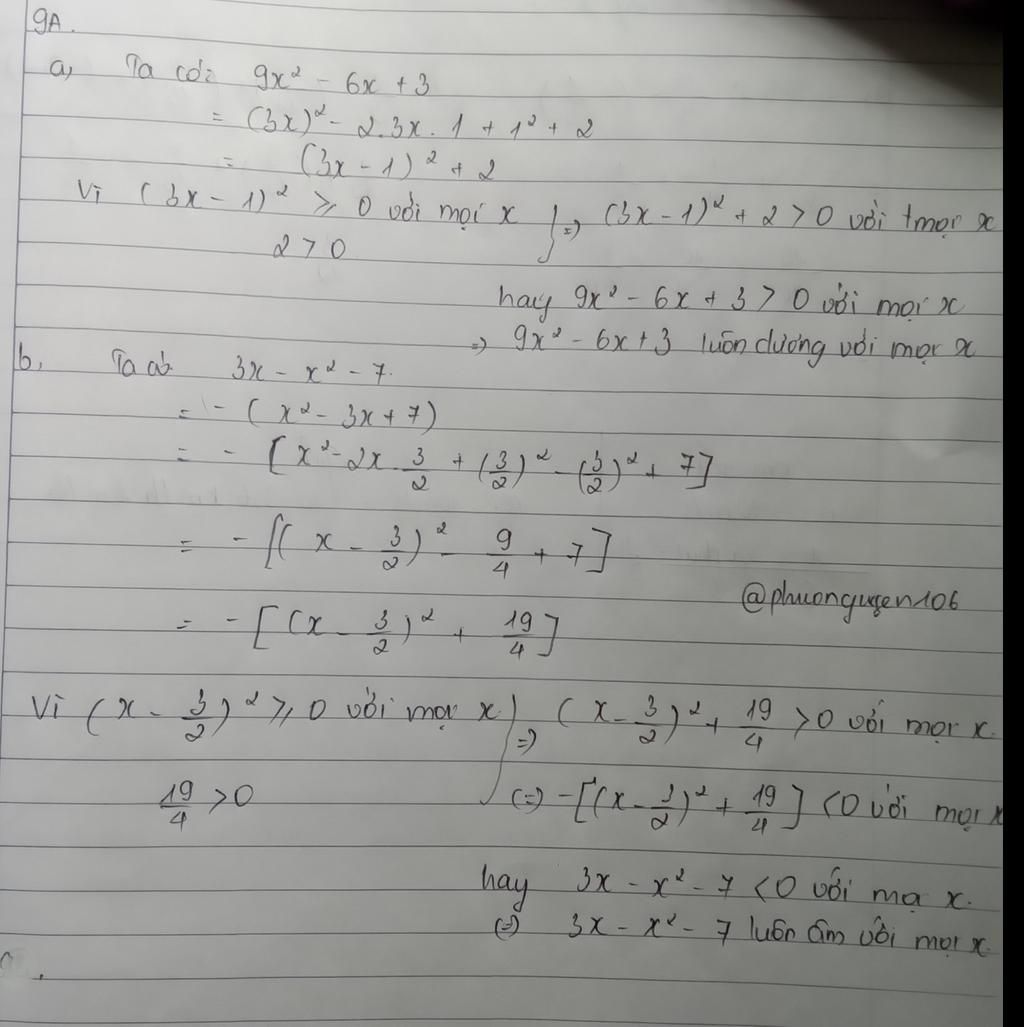 9A.
a, Ta có: 9x² - 6x + 3
= (3x)² - 2.3x.1 + 1² + 2
= (3x - 1)² + 2
Vì (3x - 1)² ≥ 0 với mọi x } => (3x - 1)² + 2 > 0 với mọi x
2 > 0
hay 9x² - 6x + 3 > 0 với mọi x
=> 9x² - 6x + 3 luôn dương với mọi x
b, Ta có 3x - x² - 7.
= - (x² - 3x + 7)
= - [x² - 2x 3/2 + (3/2)² - (3/2)² + 7]
= - [(x - 3/2)² - 9/4 + 7]
@phuonguyen106
= - [(x - 3/2)² + 19/4]
Vì (x - 3/2)² ≥ 0 với mọi x } => (x - 3/2)² + 19/4 > 0 với mọi x.
19/4 > 0 (=) - [(x - 3/2)² + 19/4] < 0 với mọi x
hay 3x - x² - 7 < 0 với mọi x.
(=) 3x - x² - 7 luôn âm với mọi x.